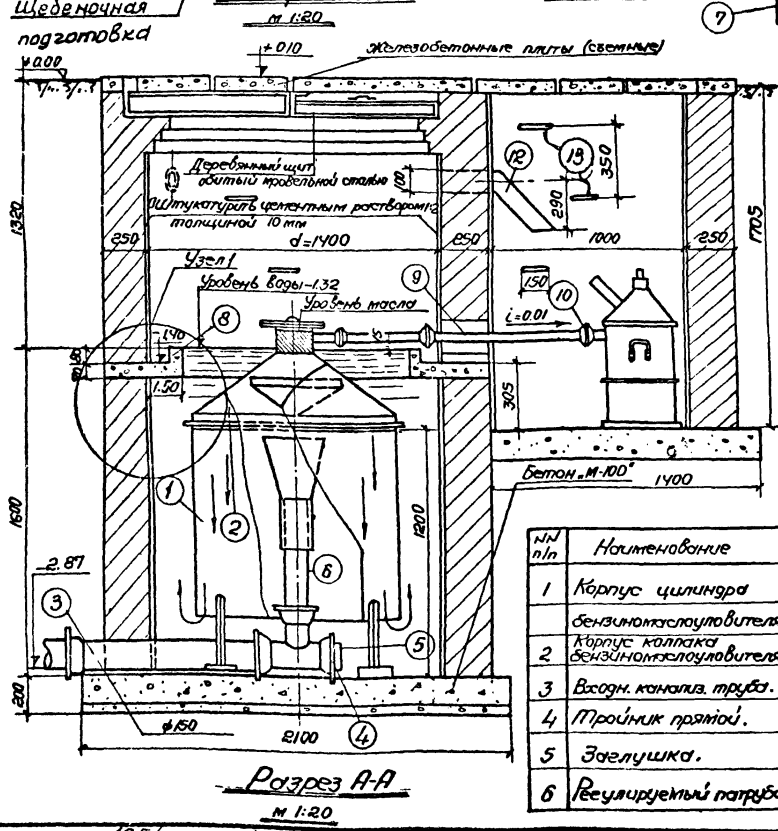 Щебеночная
подготовка
м 1:20
7
+0.00
+010
Железобетонные плиты (съемные)
Деревянный щит
обитый кровельной сталью
Оштукатурить цементным раствором 1:2
толщиной 10 мм
100
12
13
350
290
1320
1705
250
d=1400
250
1000
250
Узел 1
Уровень воды-1.32
Уровень масла
8
9
10
150
i=0.01
1.40
1.50
305
1600
1
2
1200
6
Бетон „М-100"
1400
-2.87
3
5
4
200
ф150
2100
Разрез А-А
м 1:20
NN
п/п
Наименование
1 Корпус цилиндра
бензиномаслоуловителя
2 Корпус колпака
бензиномаслоуловителя
3 Входн. канализ. труба.
4 Тройник прямой.
5 Заглушка.
6 Регулируемый патруб